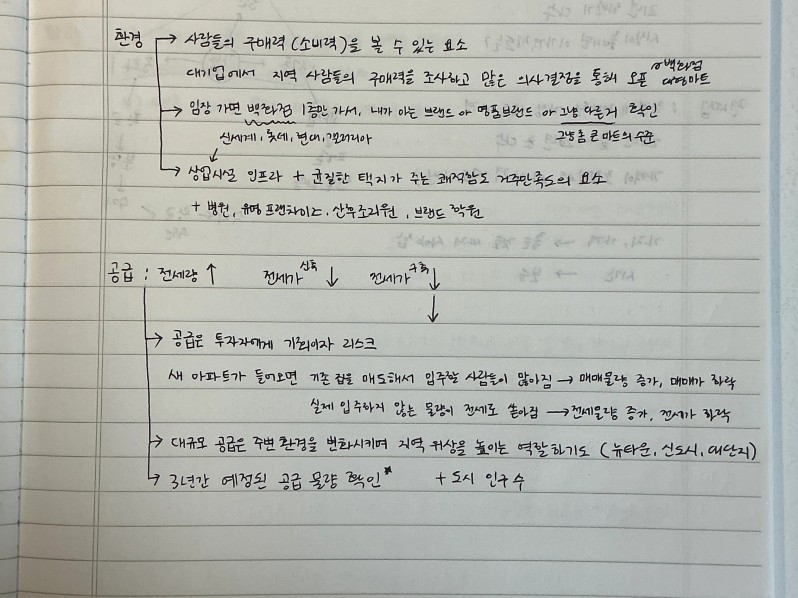 환경 → 사람들의 구매력(소비력)을 볼 수 있는 요소
대기업에서 지역 사람들의 구매력을 조사하고 많은 의사결정을 통해 오픈 ~백화점 대형마트
→ 임장 가면 백화점 1층만 가서, 내가 아는 브랜드 or 명품브랜드 or 그냥 다른거 확인
신세계, 롯데, 현대, 갤러리아 그냥 좀 큰 마트의 수준
→ 상업시설 인프라 + 균질한 택지가 주는 쾌적함도 거주만족도의 요소
+ 병원, 유명 프랜차이즈, 산후조리원, 브랜드 학원
공급 : 전세량 ↑ 전세가 신축 ↓ 전세가 구축 ↓
↓
→ 공급은 투자자에게 기회이자 리스크
새 아파트가 들어오면 기존 집을 매도해서 입주할 사람들이 많아짐 → 매매물량 증가, 매매가 하락
실제 입주하지 않는 물량이 전세로 쏟아짐 → 전세물량 증가, 전세가 하락
→ 대규모 공급은 주변 환경을 변화시키며 지역 위상을 높이는 역할하기도 (뉴타운, 신도시, 대단지)
→ 3년간 예정된 공급 물량 확인* + 도시 인구 수